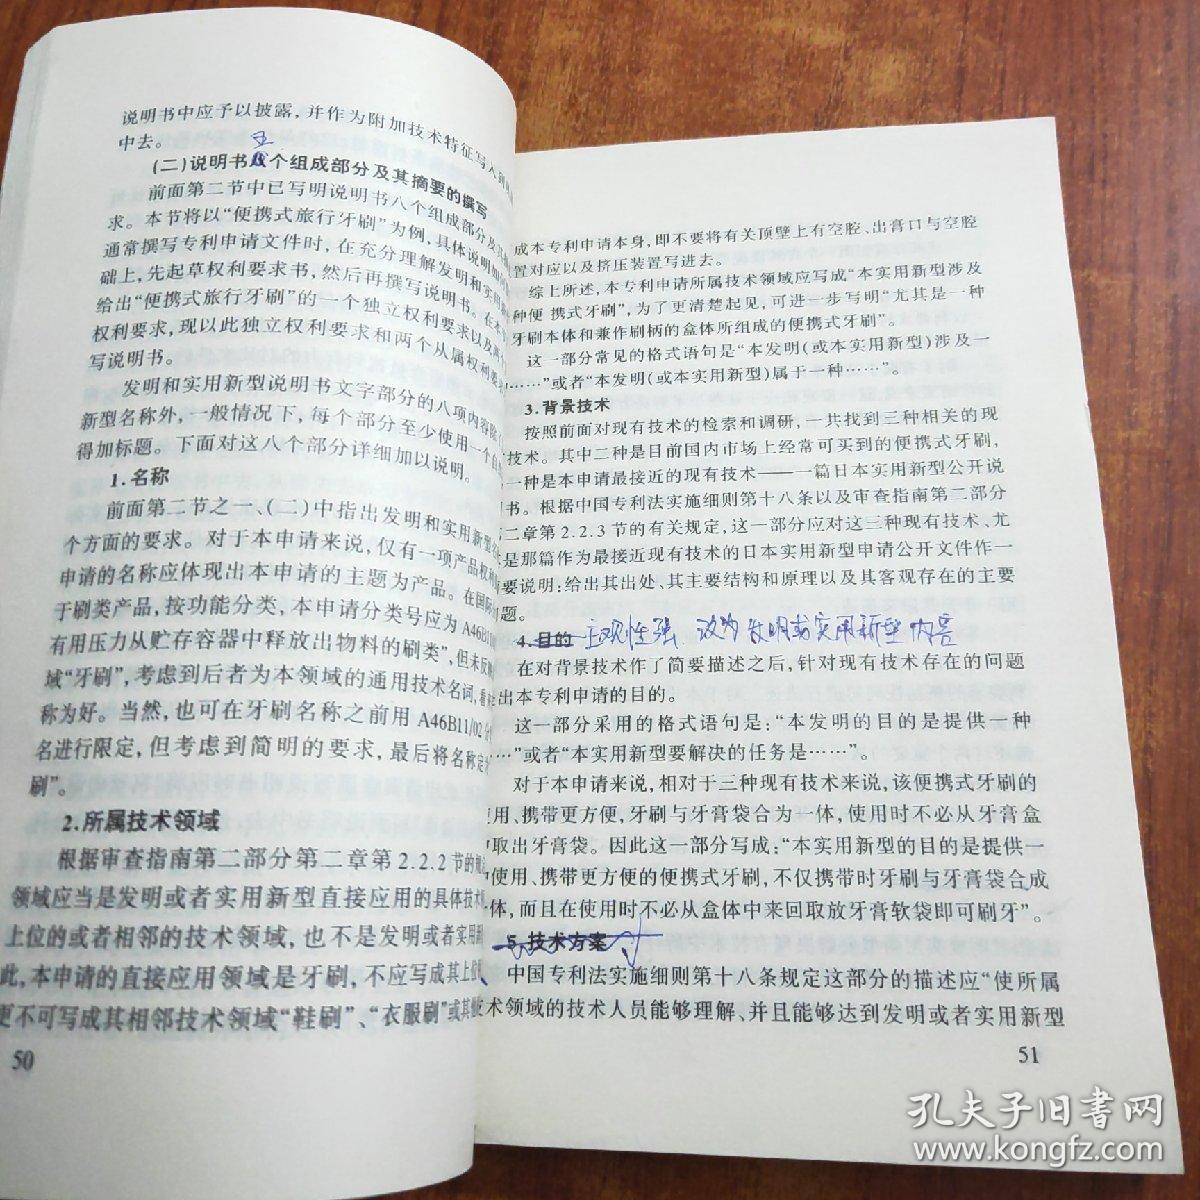 说明书中应予以披露,并作为附加技术特征写入到
中去。
五
(二)说明书八个组成部分及其摘要的撰写
前面第二节中已写明说明书八个组成部分及其
求。本节将以“便携式旅行牙刷”为例,具体说明如何
通常撰写专利申请文件时,在充分理解发明和实用
础上,先起草权利要求书,然后再撰写说明书。在本
给出“便携式旅行牙刷”的一个独立权利要求以及两
权利要求,现以此独立权利要求和两个从属权利要
写说明书。
发明和实用新型说明书文字部分的八项内容除
新型名称外,一般情况下,每个部分至少使用一个自
得加标题。下面对这八个部分详细加以说明。
1.名称
前面第二节之一、(二)中指出发明和实用新型
个方面的要求。对于本申请来说,仅有一项产品权利
申请的名称应体现出本申请的主题为产品。在国际
于刷类产品,按功能分类,本申请分类号应为A46B11/
有用压力从贮存容器中释放出物料的刷类”,但未反
域“牙刷”,考虑到后者为本领域的通用技术名词,看
称为好。当然,也可在牙刷名称之前用A46B11/02
名进行限定,但考虑到简明的要求,最后将名称定为
刷”。
2.所属技术领域
根据审查指南第二部分第二章第2.2.2节的规
领域应当是发明或者实用新型直接应用的具体技术
上位的或者相邻的技术领域,也不是发明或者实用新
此,本申请的直接应用领域是牙刷,不应写成其上位
更不可写成其相邻技术领域“鞋刷”、“衣服刷”或其他
50
成本专利申请本身,即不要将有关顶壁上有空腔、出膏口与空腔
置对应以及挤压装置写进去。
综上所述,本专利申请所属技术领域应写成“本实用新型涉及
种便 携式牙刷”,为了更清楚起见,可进一步写明“尤其是一种
牙刷本体和兼作刷柄的盒体所组成的便携式牙刷”。
这一部分常见的格式语句是“本发明(或本实用新型)涉及一
……”或者“本发明(或本实用新型)属于一种……”。
3.背景技术
按照前面对现有技术的检索和调研,一共找到三种相关的现
技术。其中二种是目前国内市场上经常可买到的便携式牙刷,
一种是本申请最接近的现有技术——一篇日本实用新型公开说
书。根据中国专利法实施细则第十八条以及审查指南第二部分
二章第2.2.3节的有关规定,这一部分应对这三种现有技术、尤
是那篇作为最接近现有技术的日本实用新型申请公开文件作一
要说明:给出其出处、其主要结构和原理以及其客观存在的主要
题。
4.目的 主观性强 改为发明或实用新型内容
在对背景技术作了简要描述之后,针对现有技术存在的问题
出本专利申请的目的。
这一部分采用的格式语句是:“本发明的目的是提供一种
…”或者“本实用新型要解决的任务是……”。
对于本申请来说,相对于三种现有技术来说,该便携式牙刷的
使用、携带更方便,牙刷与牙膏袋合为一体,使用时不必从牙膏盒
取出牙膏袋。因此这一部分写成:“本实用新型的目的是提供一
使用、携带更方便的便携式牙刷,不仅携带时牙刷与牙膏袋合成
体,而且在使用时不必从盒体中来回取放牙膏软袋即可刷牙”。
5.技术方案
中国专利法实施细则第十八条规定这部分的描述应“使所属
术领域的技术人员能够理解、并且能够达到发明或者实用新型
51
孔夫子旧书网
www.kongfz.com